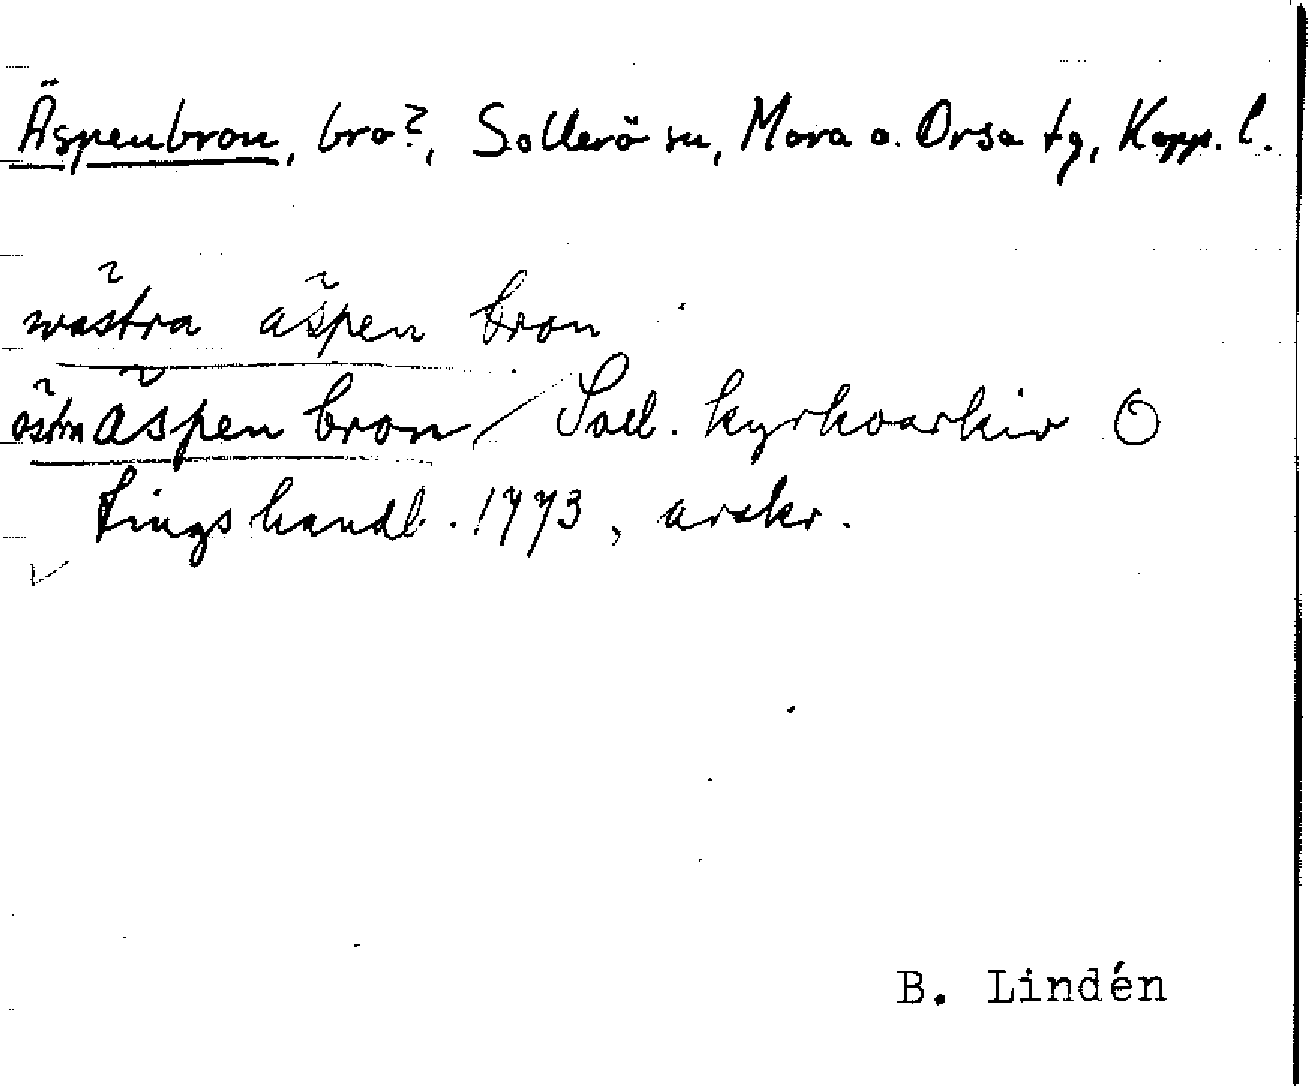 Äspenbron, bro?, Sollerö sn, Mora o. Orsa tg, Kopp. l.
wästra äspen bron
östra äspen bron / Soll. kyrkoarkiv O
tingshandl. 1773, avskr.
B. Lindén